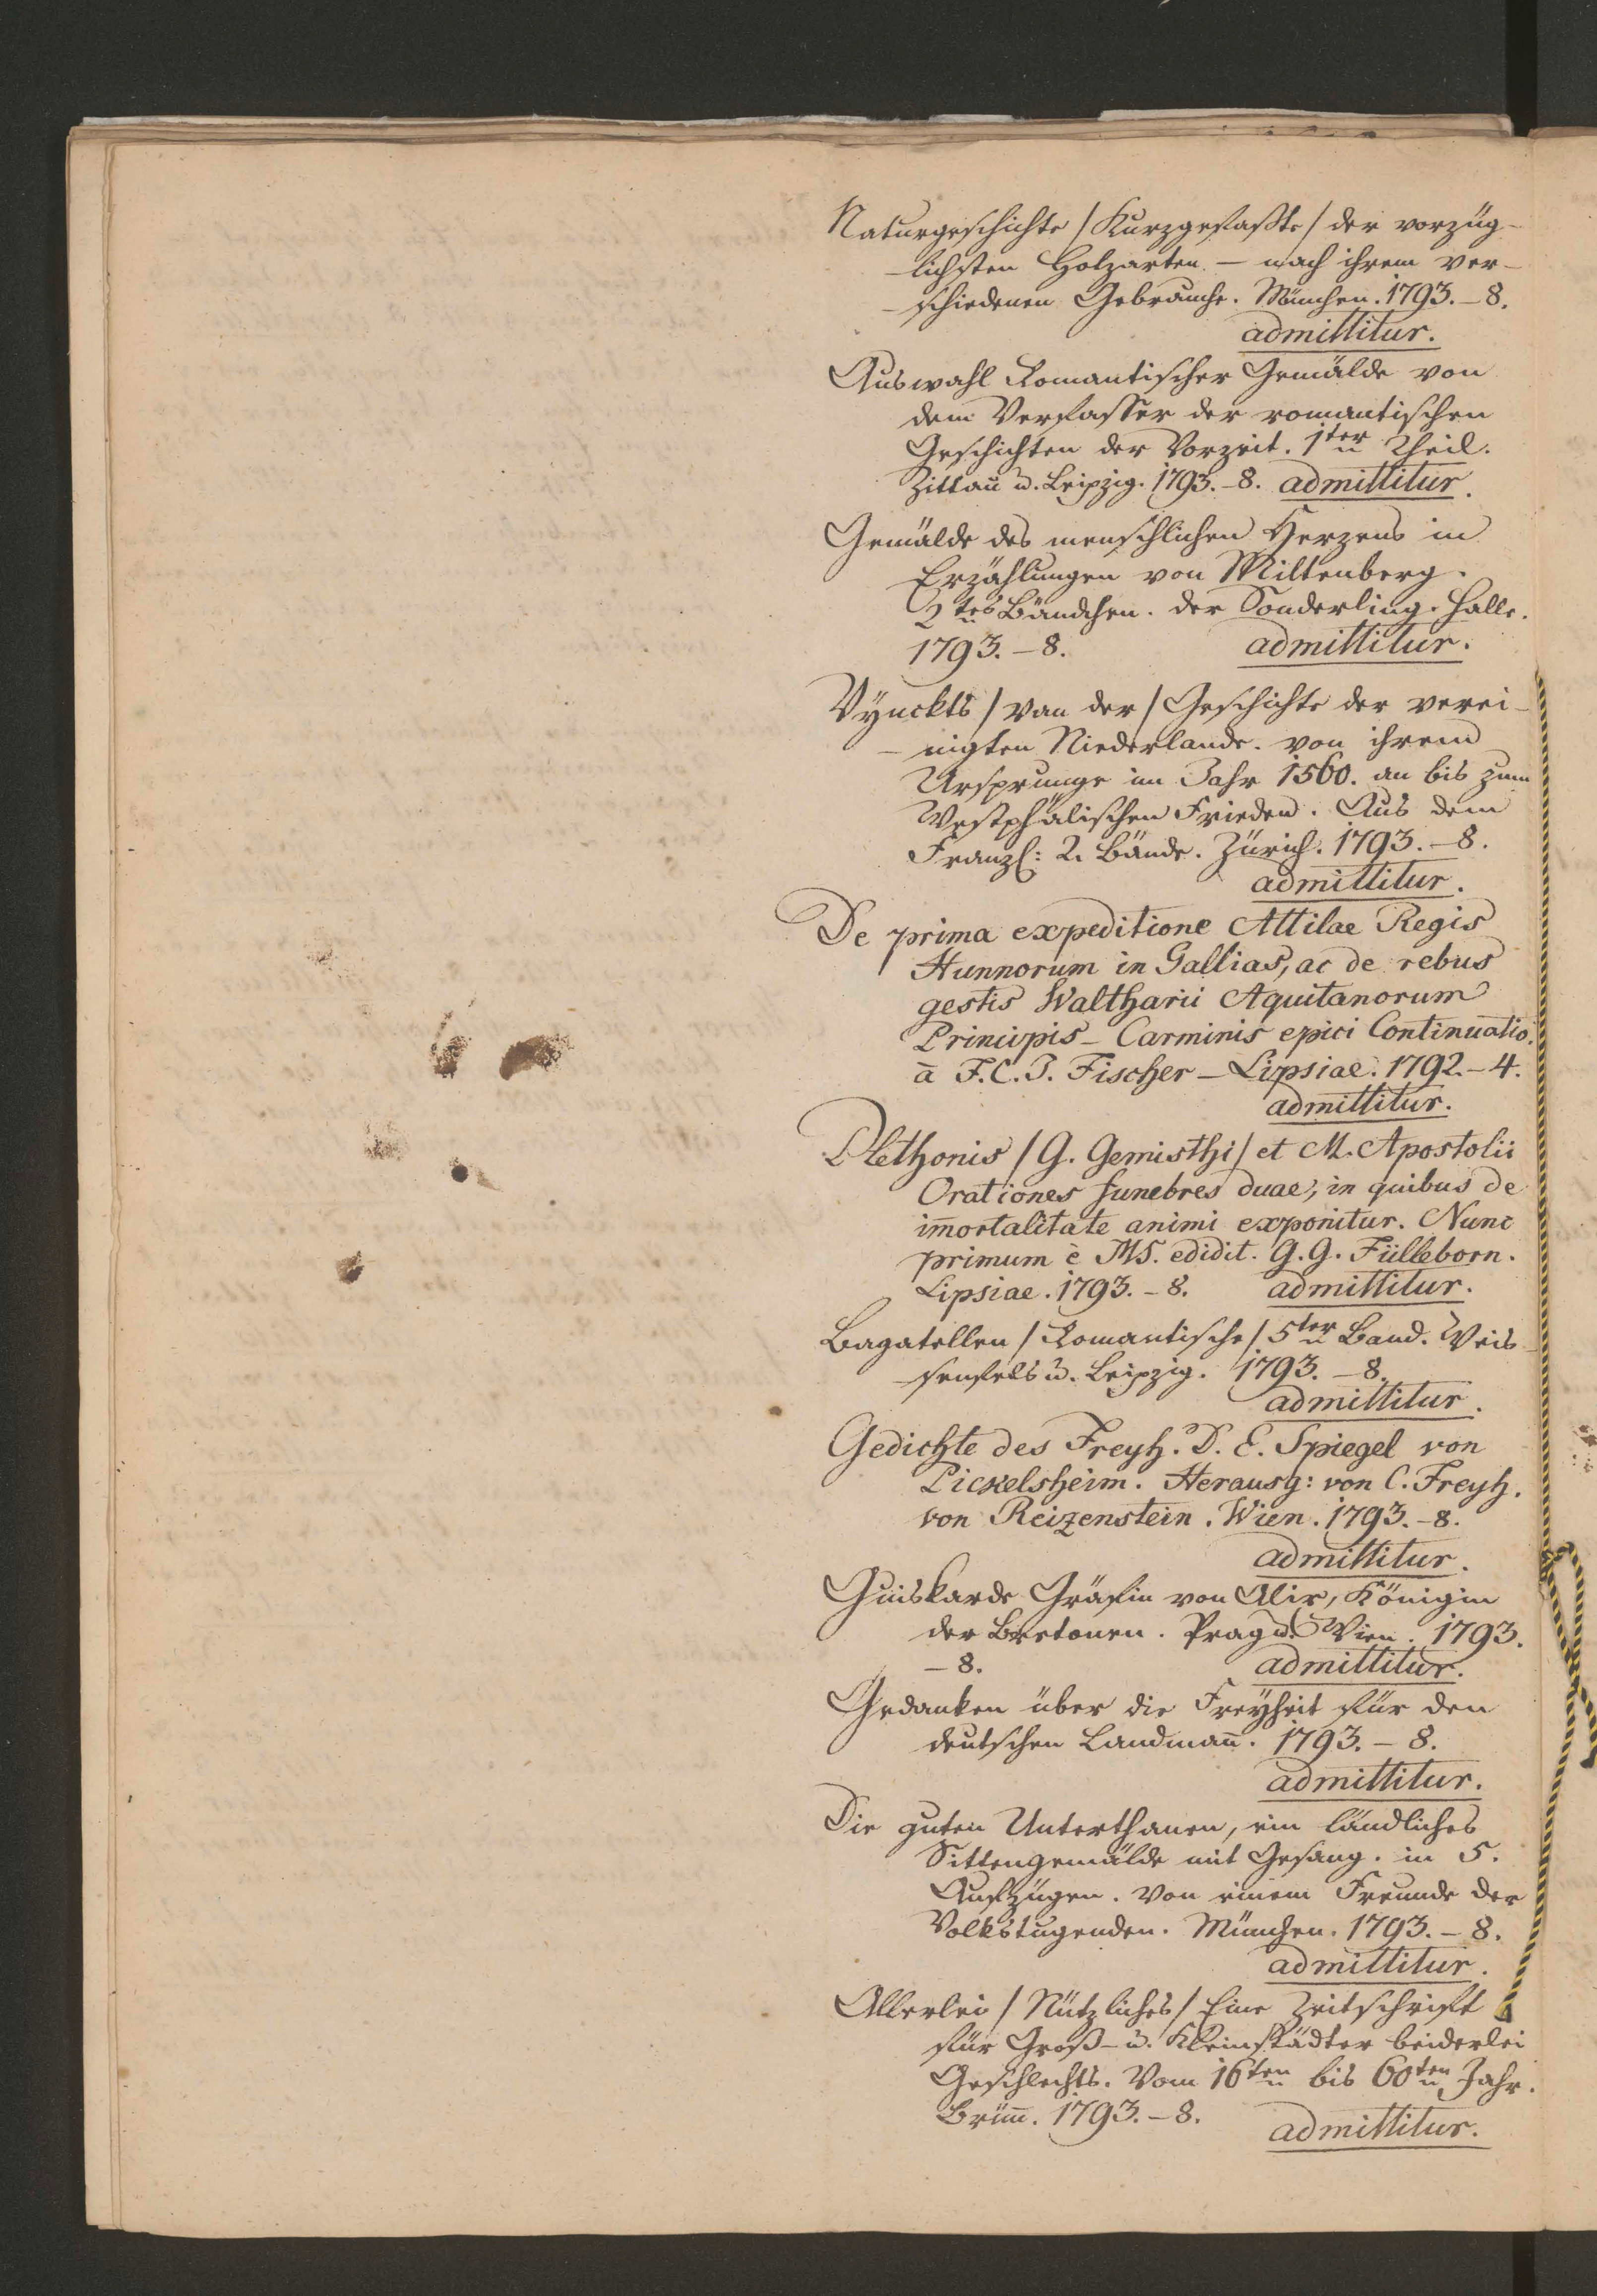 Naturgeschichte /Kurzgefaßte/ der vorzüg-
-lichsten Holzarten – nach ihrem ver-
-schiedenen Gebrauche. München. 1793.–8.
admittitur.
Auswahl Romantischer Gemälde von
dem Verfasser der romantischen
Geschichten der Vorzeit. 1ter Theil.
Zittau u. Leipzig. 1793.–8. admittitur.
Gemälde des menschlichen Herzens in
Erzählungen von Miltenberg.
2tes Bändchen. der Sonderling. Halle.
1793.–8. admittitur.
Vÿnckts /van der/ Geschichte der verei-
-nigten Niederlande. von ihrem
Ursprunge im Jahr 1560. an bis zum
Westphälischen Frieden. Aus dem
Franzs: 2. Bände. Zürich. 1793.–8.
admittitur.
De prima expeditione Attilae Regis
Hunnorum in Gallias, ac de rebus
gestis Waltharii Aquitanorum
Principis – Carminis epici Continuatio.
à F. C. J. Fischer – Lipsiae. 1792.–4.
admittitur.
Plethonis /G. Gemisthi/ et M. Apostolii
Orationes funebres duae, in quibus de
im̄ortalitate animi exponitur. Nunc
primum è MS. edidit. G. G. Fülleborn.
Lipsiae. 1793.–8. admittitur.
Bagatellen /Romantische/ 5ter Band. Weis-
-senfels u. Leipzig. 1793.–8.
admittitur.
Gedichte des Freyh. D. E. Spiegel von
Pickelsheim. Herausg: von C. Freyh.
von Reizenstein. Wien. 1793.–8.
admittitur.
Guiskarde Gräfin von Alix, Königin
der Bretonen. Prag u. Wien. 1793.
–8. admittitur.
Gedanken über die Freÿheit für den
deutschen Landman̄. 1793.–8.
admittitur.
Die guten Unterthanen, ein ländliches
Sittengemälde mit Gesang. in 5.
Aufzügen. Von einem Freunde der
Volkstugenden. München. 1793.–8.
admittitur.
Allerlei /Nützliches/ Eine Zeitschrift
für Groß- u. Kleinstädter beiderlei
Geschlechts. Vom 16ten bis 60ten Jahr.
Brün̄. 1793.–8. admittitur.